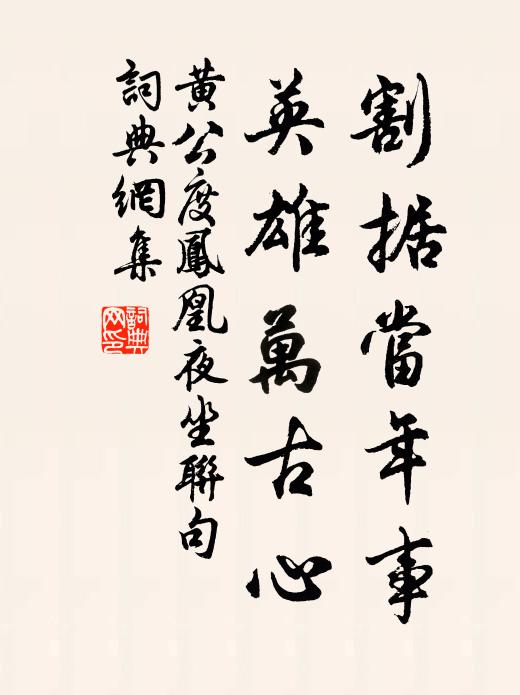 割据當年事
英雄萬古心
黃公度鳳凰夜坐聯句
詞典網集
詞典網印